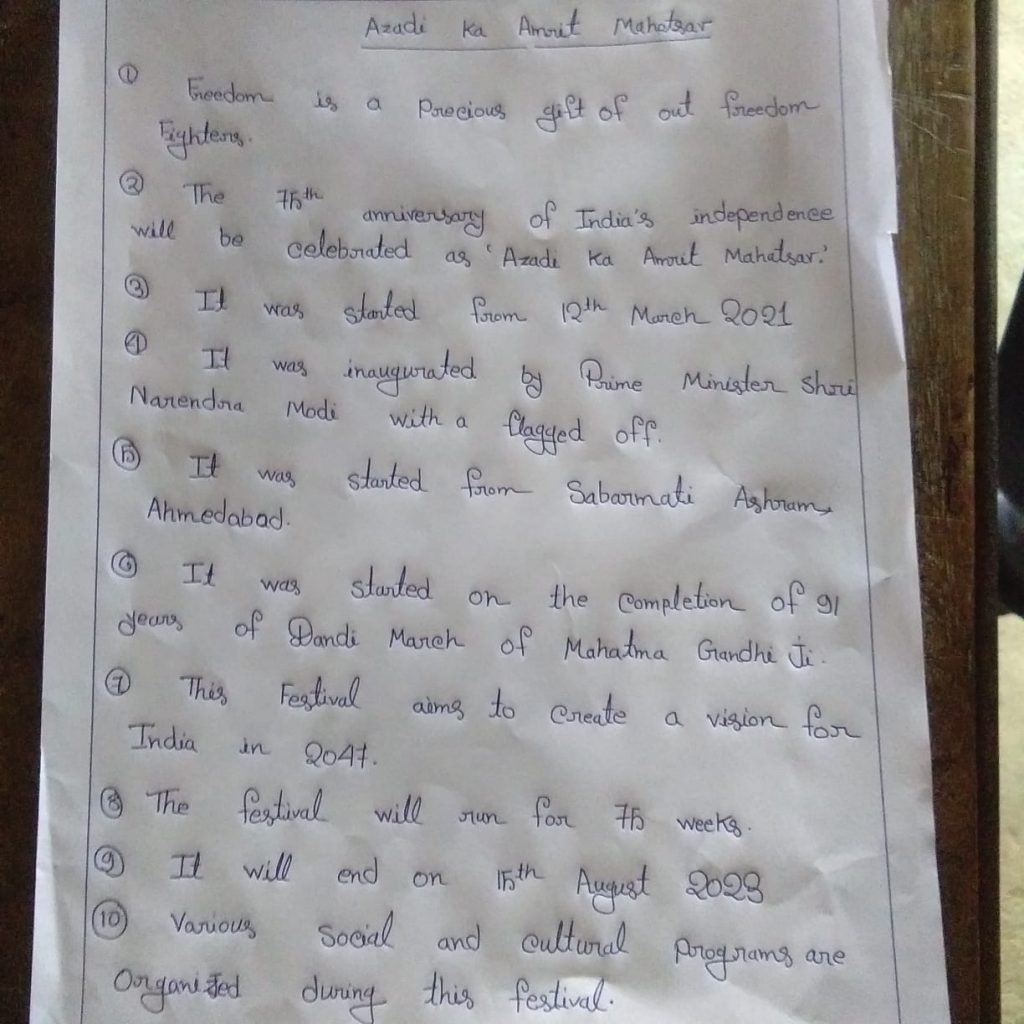 Azadi Ka Amrit Mahatsar
① Freedom is a Precious gift of out freedom
Fighters.
② The 75th anniversary of India's independence
will be celebrated as 'Azadi Ka Amrit Mahatsar.'
③ It was started from 12th March 2021
④ It was inaugurated by Prime Minister Shri
Narendra Modi with a flagged off.
⑤ It was started from Sabarmati Ashram,
Ahmedabad.
⑥ It was started on the completion of 91
years of Dandi March of Mahatma Gandhi Ji.
⑦ This Festival aims to create a vision for
India in 2047.
⑧ The festival will run for 75 weeks.
⑨ It will end on 15th August 2023
⑩ Various Social and cultural programs are
Organized during this festival.